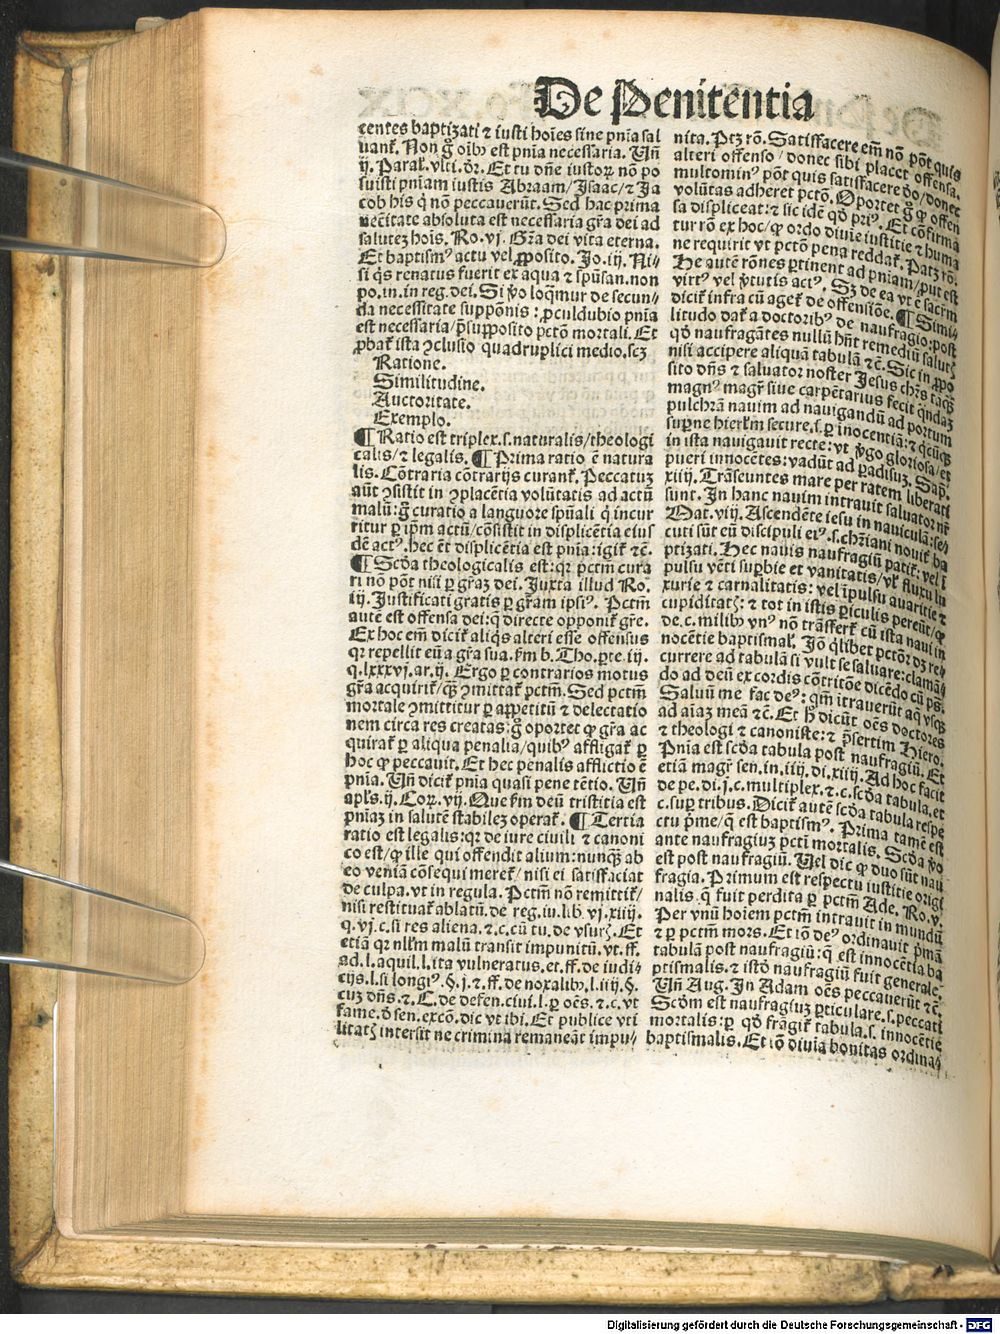 De Penitentia
centes baptizati ⁊ iusti hoīes sine pn̄ia sal
uant᷑. Non g̊ oīb⁹ est pn̄ia necessaria. Un̄
ij. Paral. vlti. dr̄. Et tu dn̄e iustoꝝ nō po
suisti pn̄iam iustis Abraam/Isaac/⁊ Ja
cob his q̇ nō peccauerūt. Sed hac prima
necītate absoluta est necessaria gr̄a dei ad
salutez hoīs. Ro. vj. Gr̄a dei vita eterna.
Et baptism⁹ actu vel ꝓposito. Jo. iij. Ni⸗
si q̇s renatus fuerit ex aqua ⁊ spūsan. non
po. in. in reg. dei. Si ꝟo loq̄mur de secun⸗
da necessitate suppōnis: ꝓculdubio pn̄ia
est necessaria/p̄supposito pctō mortali. Et
ꝓbat᷑ ista ꝯclusio quadruplici medio. scꝫ
Ratione.
Similitudine.
Auctoritate.
Exemplo.
¶ Ratio est triplex. s. naturalis/theologi
calis/⁊ legalis. ¶ Prima ratio ē natura
lis. Cōtraria cōtrarijs curant᷑. Peccatuꝫ
aūt ꝯsistit in ꝯplacētia volūtatis ad actū
malū: g̊ curatio a languore spūali q̇ incur
ritur ꝑ ip̄m actū/cōsistit in displicētia eius
dē act⁹. hec ēt displicētia est pn̄ia: igit᷑ ⁊c̄.
¶ Scd̄a theologicalis est: qꝛ pctm̄ cura
ri nō pōt nisi ꝑ gr̄aꝫ dei. Juxta illud Ro.
iij. Justificati gratis ꝑ gr̄am ipsi⁹. Pctm̄
autē est offensa dei: q̄ directe opponit᷑ gr̄e.
Ex hoc em̄ dicit᷑ aliq̇s alteri esse offensus
qꝛ repellit eū a gr̄a sua. ẜm b. Tho. ꝑte. iij.
q. lxxxvj. ar. ij. Ergo ꝑ contrarios motus
gr̄a acquirit᷑/q̄ꝫ ꝯmittat᷑ pctm̄. Sed pctm̄
mortale ꝯmittitur ꝑ appetitū ⁊ delectatio
nem circa res creatas: g̊ oportet ꝙ gr̄a ac
quirat᷑ ꝑ aliqua penalia/quib⁹ affligat᷑ ꝑ
hoc ꝙ peccauit. Et hec penalis afflictio ē
pn̄ia. Un̄ dicit᷑ pn̄ia quasi pene tētio. Un̄
apl̄s. ij. Coꝝ. vij. Que ẜm deū tristitia est
pn̄iaꝫ in salutē stabileꝫ operat᷑. ¶ Tertia
ratio est legalis: qꝛ de iure ciuili ⁊ canoni
co est/ꝙ ille qui offendit alium: nunq̄ꝫ ab
eo veniā cōsequi meret᷑/nisi ei satisfaciat
de culpa. vt in regula. Pctm̄ nō remittit᷑/
nisi restituat᷑ ablatū. de reg. iu. lib. vj. xiiij.
q. vj. c. si res aliena. ⁊. c. cū tu. de vsurꝭ. Et
etiā qꝛ nllm̄ malū transit impunitū. vt. ff.
ad. l. aquil. l. ita vulneratus. et. ff. de iudi⸗
cijs. l. si longi⁹. §. j. ⁊ ff. de noxalib⁹. l. iiij. §.
cuꝫ dn̄s. ⁊. C. de defen. ciui. l. ꝑ oēs. ⁊. c. vt
fame. d̄ sen. excō. dic vt ibi. Et publice vti
litatꝭ intersit ne crimina remaneāt impu⸗
nita. Ptꝫ rō. Satisfacere em̄ nō pōt quis
alteri offenso/donec sibi placet offensa.
multomin⁹ pōt quis satisfacere d̄o/donec
volūtas adheret pctō. Oportet g̊ ꝙ offen
sa displiceat: ⁊ sic idē qd̄ pri⁹. Et cōfirma
tur rō ex hoc/ꝙ ordo diuīe iustitie ⁊ huma
ne requirit vt pctō pena reddat᷑. Patꝫ rō.
He autē rōnes ꝑtinent ad pn̄iam/put est
virt⁹ vel ꝟtutis act⁹. Sꝫ de ea vt ē sacrm̄
dicit᷑ infra cū aget᷑ de offensiōe. ¶ Simi⸗
litudo dat᷑ a doctorib⁹ de naufragio: post
qd̄ naufragātes nullū hn̄t remediū salutꝭ
nisi accipere aliquā tabulā ⁊c̄. Sic in ꝓpo
sito dn̄s ⁊ saluator noster Jesus chr̄s taq̄ꝫ
magn⁹ magr̄ siue carpētarius fecit q̄ndaꝫ
pulchrā nauim ad nauigandū ad portum
suꝑne hierl̄m secure. s. ꝑ inocentiā: ⁊ q̇cūqꝫ
in ista nauigauit recte: vt ꝟgo gloriosa/et
pueri innocētes: vadūt ad ꝑadisuꝫ. Sap.
xiiij. Trāseuntes mare per ratem liberati
sunt. In hanc nauim intrauit saluator nr̄
Mat. viij. Ascendēte iesu in nauiculā: se⸗
cuti sūt eū discipuli ei⁹. s. chr̄iani nouit᷑ ba
ptizati. Hec nauis naufragiū patit᷑: vel ī
pulsu vēti suꝑbie et vanitatis/vl᷑ fluxu lu
xurie ⁊ carnalitatis: vel īpulsu auaritie ⁊
cupiditatꝭ: ⁊ tot in istis ꝑiculis pereūt/ꝙ
de. c. milib⁹ vn⁹ nō trāffert᷑ cū ista naui in
nocētie baptismal᷑. Jō q̇libet pctōr dꝫ re⸗
currere ad tabulā si vult se saluare: clamā⸗
do ad deū ex cordis cōtritōe dicēdo cū ps̄.
Saluū me fac de⁹: qm̄ ītrauerūt aq̄ vsqꝫ
ad aīaꝫ meā ⁊c̄. Et h̄ dicūt oēs doctores
⁊ theologi ⁊ canoniste: ⁊ p̄sertim Hiero.
Pn̄ia est scd̄a tabula post naufragiū. Et
etiā magr̄ sen. in. iiij. di. xiiij. Ad hoc facit
de pe. di. j. c. multiplex. ⁊. c. scd̄a tabula. et
c. suꝑ tribus. Dicit᷑ autē scd̄a tabula respe
ctu p̄me/q̄ est baptism⁹. Prima tamē est
ante naufragiuꝫ pcti mortalis. Scd̄a ꝟo
est post naufragiū. Uel dic ꝙ duo sūt nau
fragia. Primum est respectu iustitie origi
nalis q̄ fuit perdita ꝑ pctm̄ Ade. Ro. v.
Per vnū hoīem pctm̄ intrauit in mundū
⁊ ꝑ pctm̄ mors. Et iō de⁹ ordinauit p̄mā
tabulā post naufragiū: q̄ est innocētia ba
ptismalis. ⁊ istō naufragiū fuit generale.
Un̄ Aug. In Adam oēs peccauerūt ⁊c̄.
Scd̄m est naufragiuꝫ ꝑticulare. s. peccati
mortalis: ꝑ qd̄ frāgit᷑ tabula. s. innocētie
baptismalis. Et iō diuīa bonitas ordina⸗
Digitalisierung gefördert durch die Deutsche Forschungsgemeinschaft - DFG